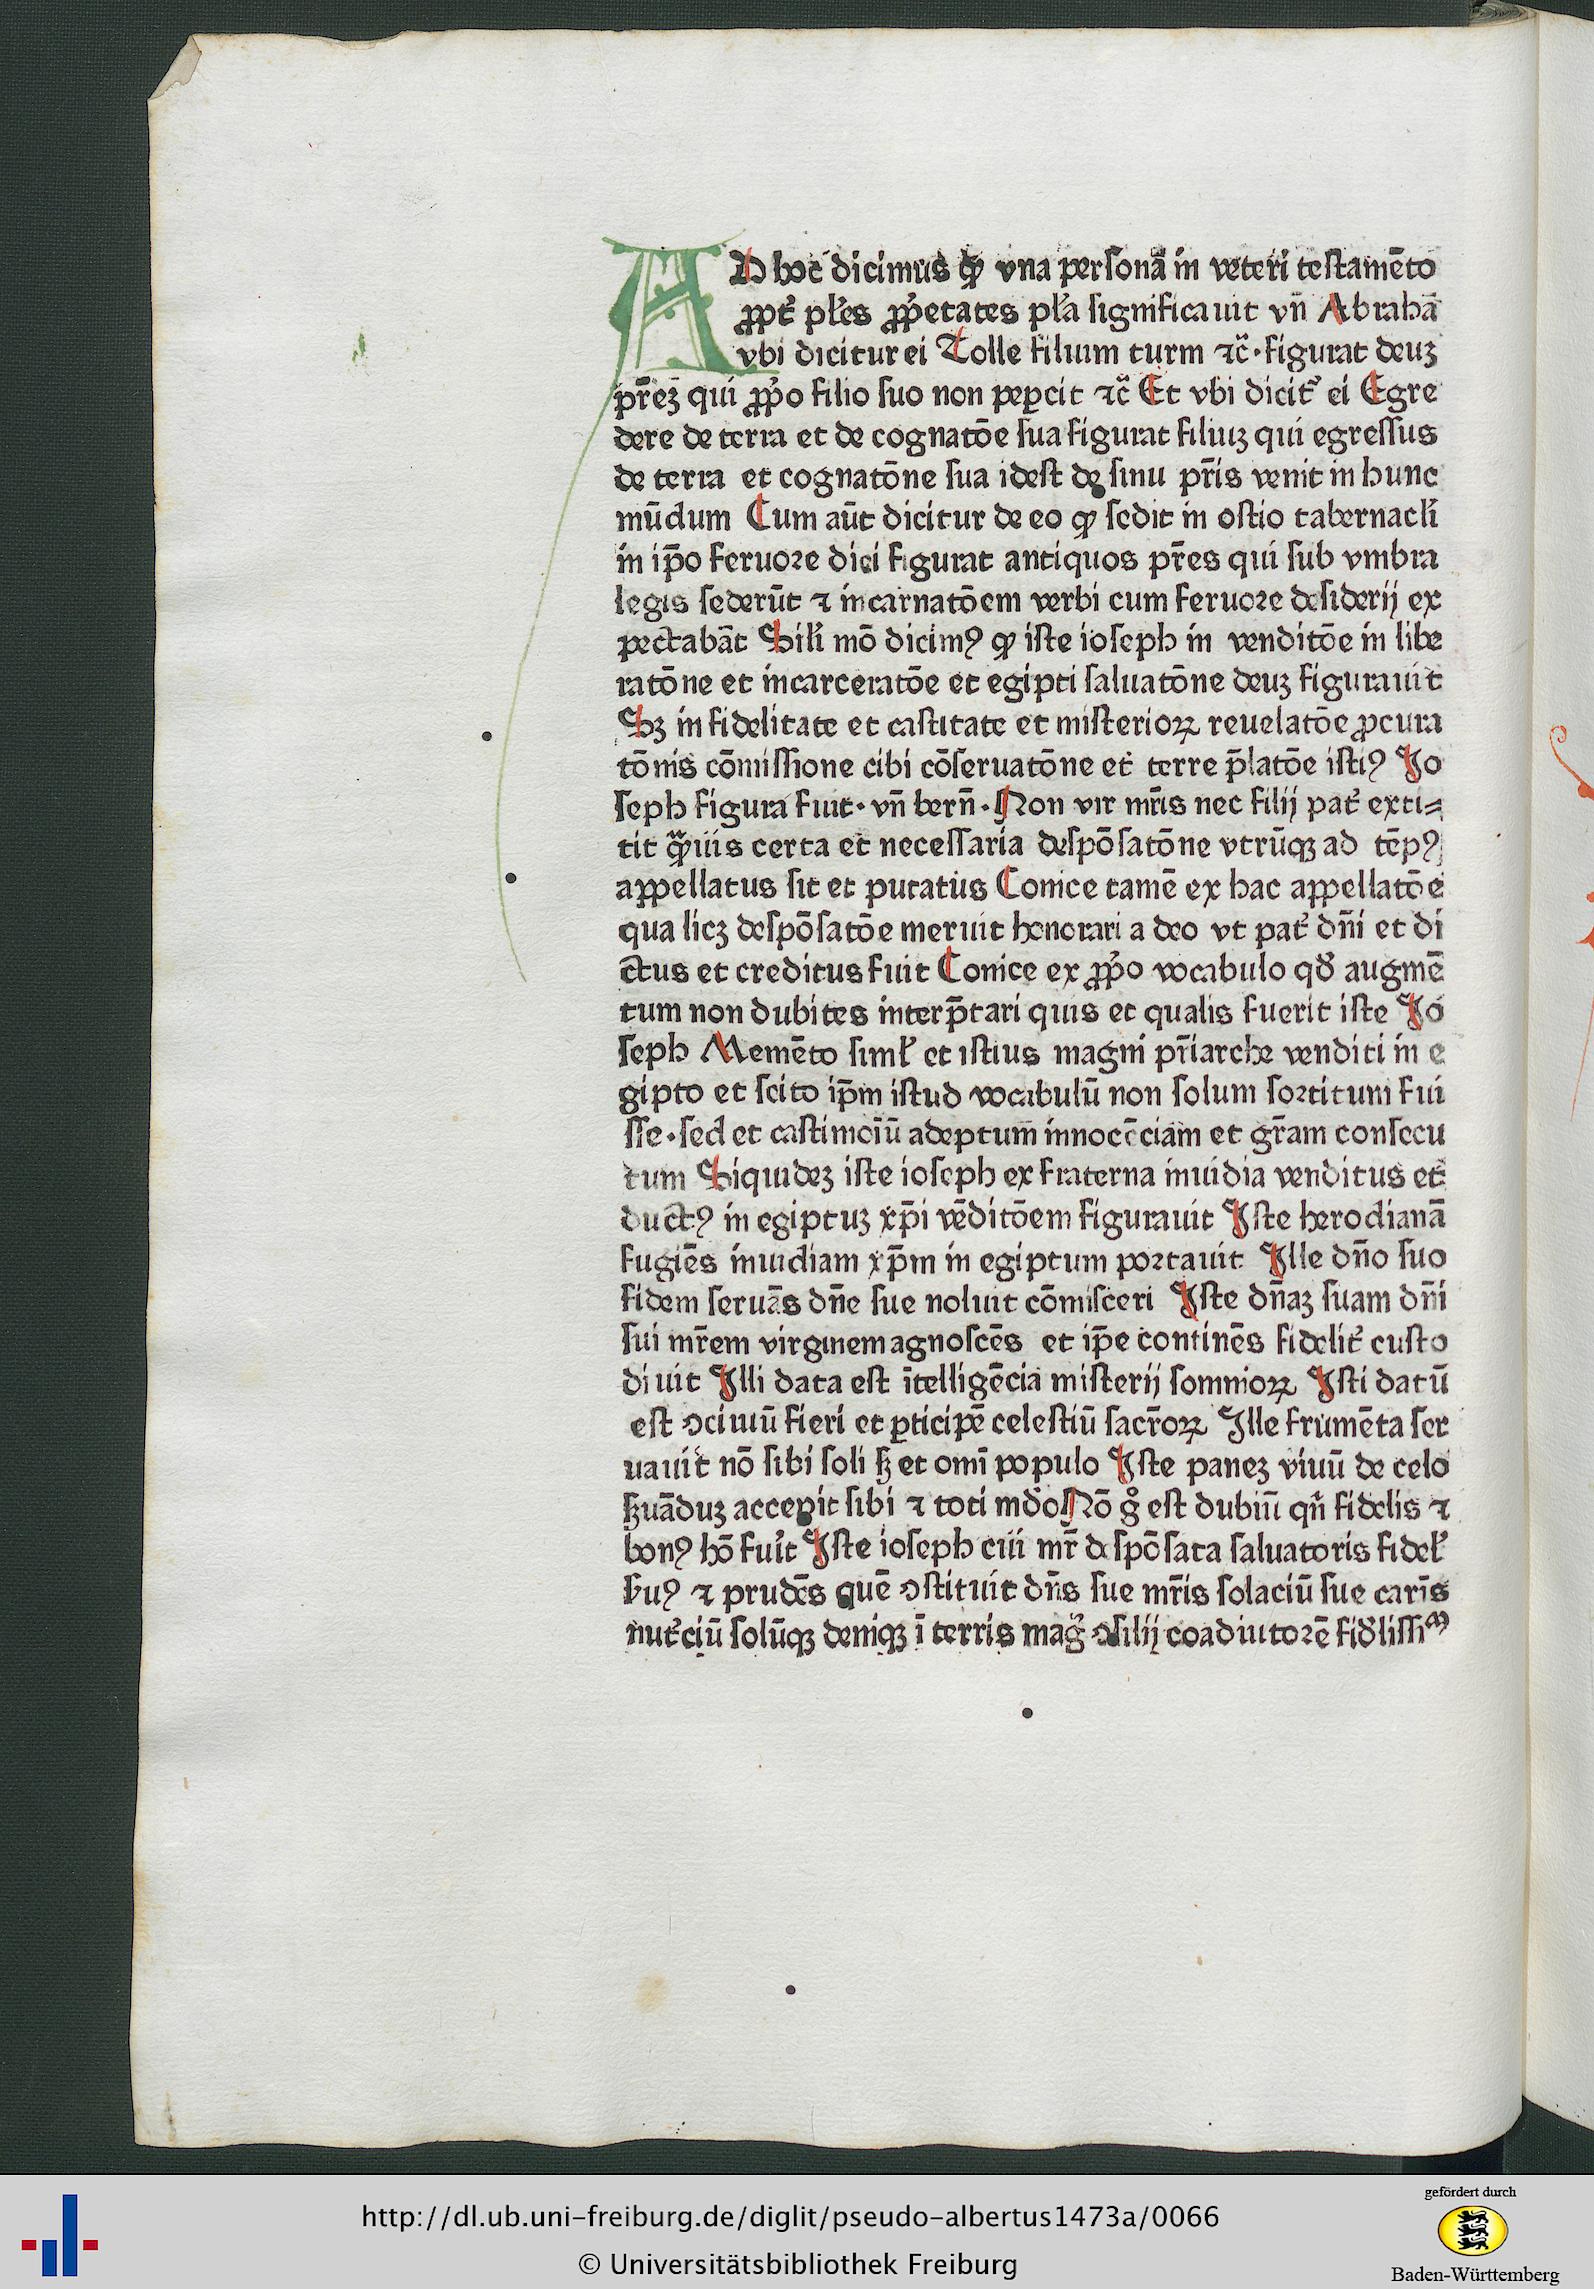 AD hoc dicimus ꝙ vna personā in veteri testamēto
ꝓpt̓ pl̓es ꝓp̓etates pl̓a significauit vn̄ Abrahā
vbi dicitur ei Tolle filium tuum ⁊c̄·figurat deuꝫ
pr̄eꝫ qui ꝓp̓o filio suo non peꝑcit ⁊c̄ Et vbi dicit̓ ei Egre
dere de terra et de cognatōe sua figurat filiuꝫ qui egressus
de terra et cognatōne sua idest de sinu pr̄is venit in hunc
mūdum Cum aūt dicitur de eo ꝙ sedit in ostio tabernacl̓i
in ip̄o feruore diei figurat antiquos pr̄es qui sub vmbra
legis sederūt ⁊ incarnatōem verbi cum feruore desiderij ex
pectabāt Sil̓i mō dicimꝰ ꝙ iste ioseph in venditōe in libe
ratōne et incarceratōe et egipti saluatōne deuꝫ figurauit
Sꝫ in fidelitate et castitate et misterioꝝ reuelatōe ꝓcura
tōnis cōmissione cibi cōseruatōne et terre p̄latōe istiꝰ Jo
seph figura fuit· vn̄ bern̄·Non vir mr̄is nec filij pat̓ exti⸗
tit ꝙuis certa et necessaria despōsatōne vtrūqꝫ ad tēpꝰ
appellatus sit et putatus Conice tamē ex hac appellatōe
qua licꝫ despōsatōe meruit honorari a deo vt pat̓ dn̄i et di
ctus et creditus fuit Conice ex ꝓp̓o vocabulo qd̓ augmē
tum non dubites interp̄tari quis et qualis fuerit iste Jo
seph Memēto siml̓ et istius magni pr̄iarche venditi in e
gipto et scito ip̄m istud vocabulū non solum sortitum fui
sse·sed et castimoīū adeptum innocēciam et gr̄am consecu
tum Siquideꝫ iste ioseph ex fraterna inuidia venditus et
ductꝰ in egiptuꝫ xp̄i vēditōem figurauit Iste herodianā
fugiēs inuidiam xp̄m in egiptum portauit Ille dn̄o suo
fidem seruās dn̄e sue noluit cōmisceri Iste dn̄aꝫ suam dn̄i
sui mr̄em virginem agnoscēs et ip̄e continēs fidelit̓ custo
diuit Illi data est ītelligēcia misterij somnioꝝ Isti datū
est ↄciuū fieri et ꝑticipē celestiū sacr̄oꝝ Ille frumēta ser
uauit nō sibi soli sꝫ et omī populo Iste paneꝫ viuū de celo
sꝫuāduꝫ accepit sibi ⁊ toti mdo Nō g̊ est dubiū qn̄ fidelis ⁊
bonꝰ hō fuit Iste ioseph cui mr̄ despōsata saluatoris fidel̓
s̓uꝰ ⁊ prudēs quē ↄstituit dn̄s sue mr̄is solaciū sue carīs
nut̓ciū solūqꝫ deniqꝫ ī terris mag̓ ↄsilij coadiutorē fid̓lissīm
http://dl.ub.uni-freiburg.de/diglit/pseudo-albertus1473a/0066
© Universitätsbibliothek Freiburg
gefördert durch
Baden-Württemberg